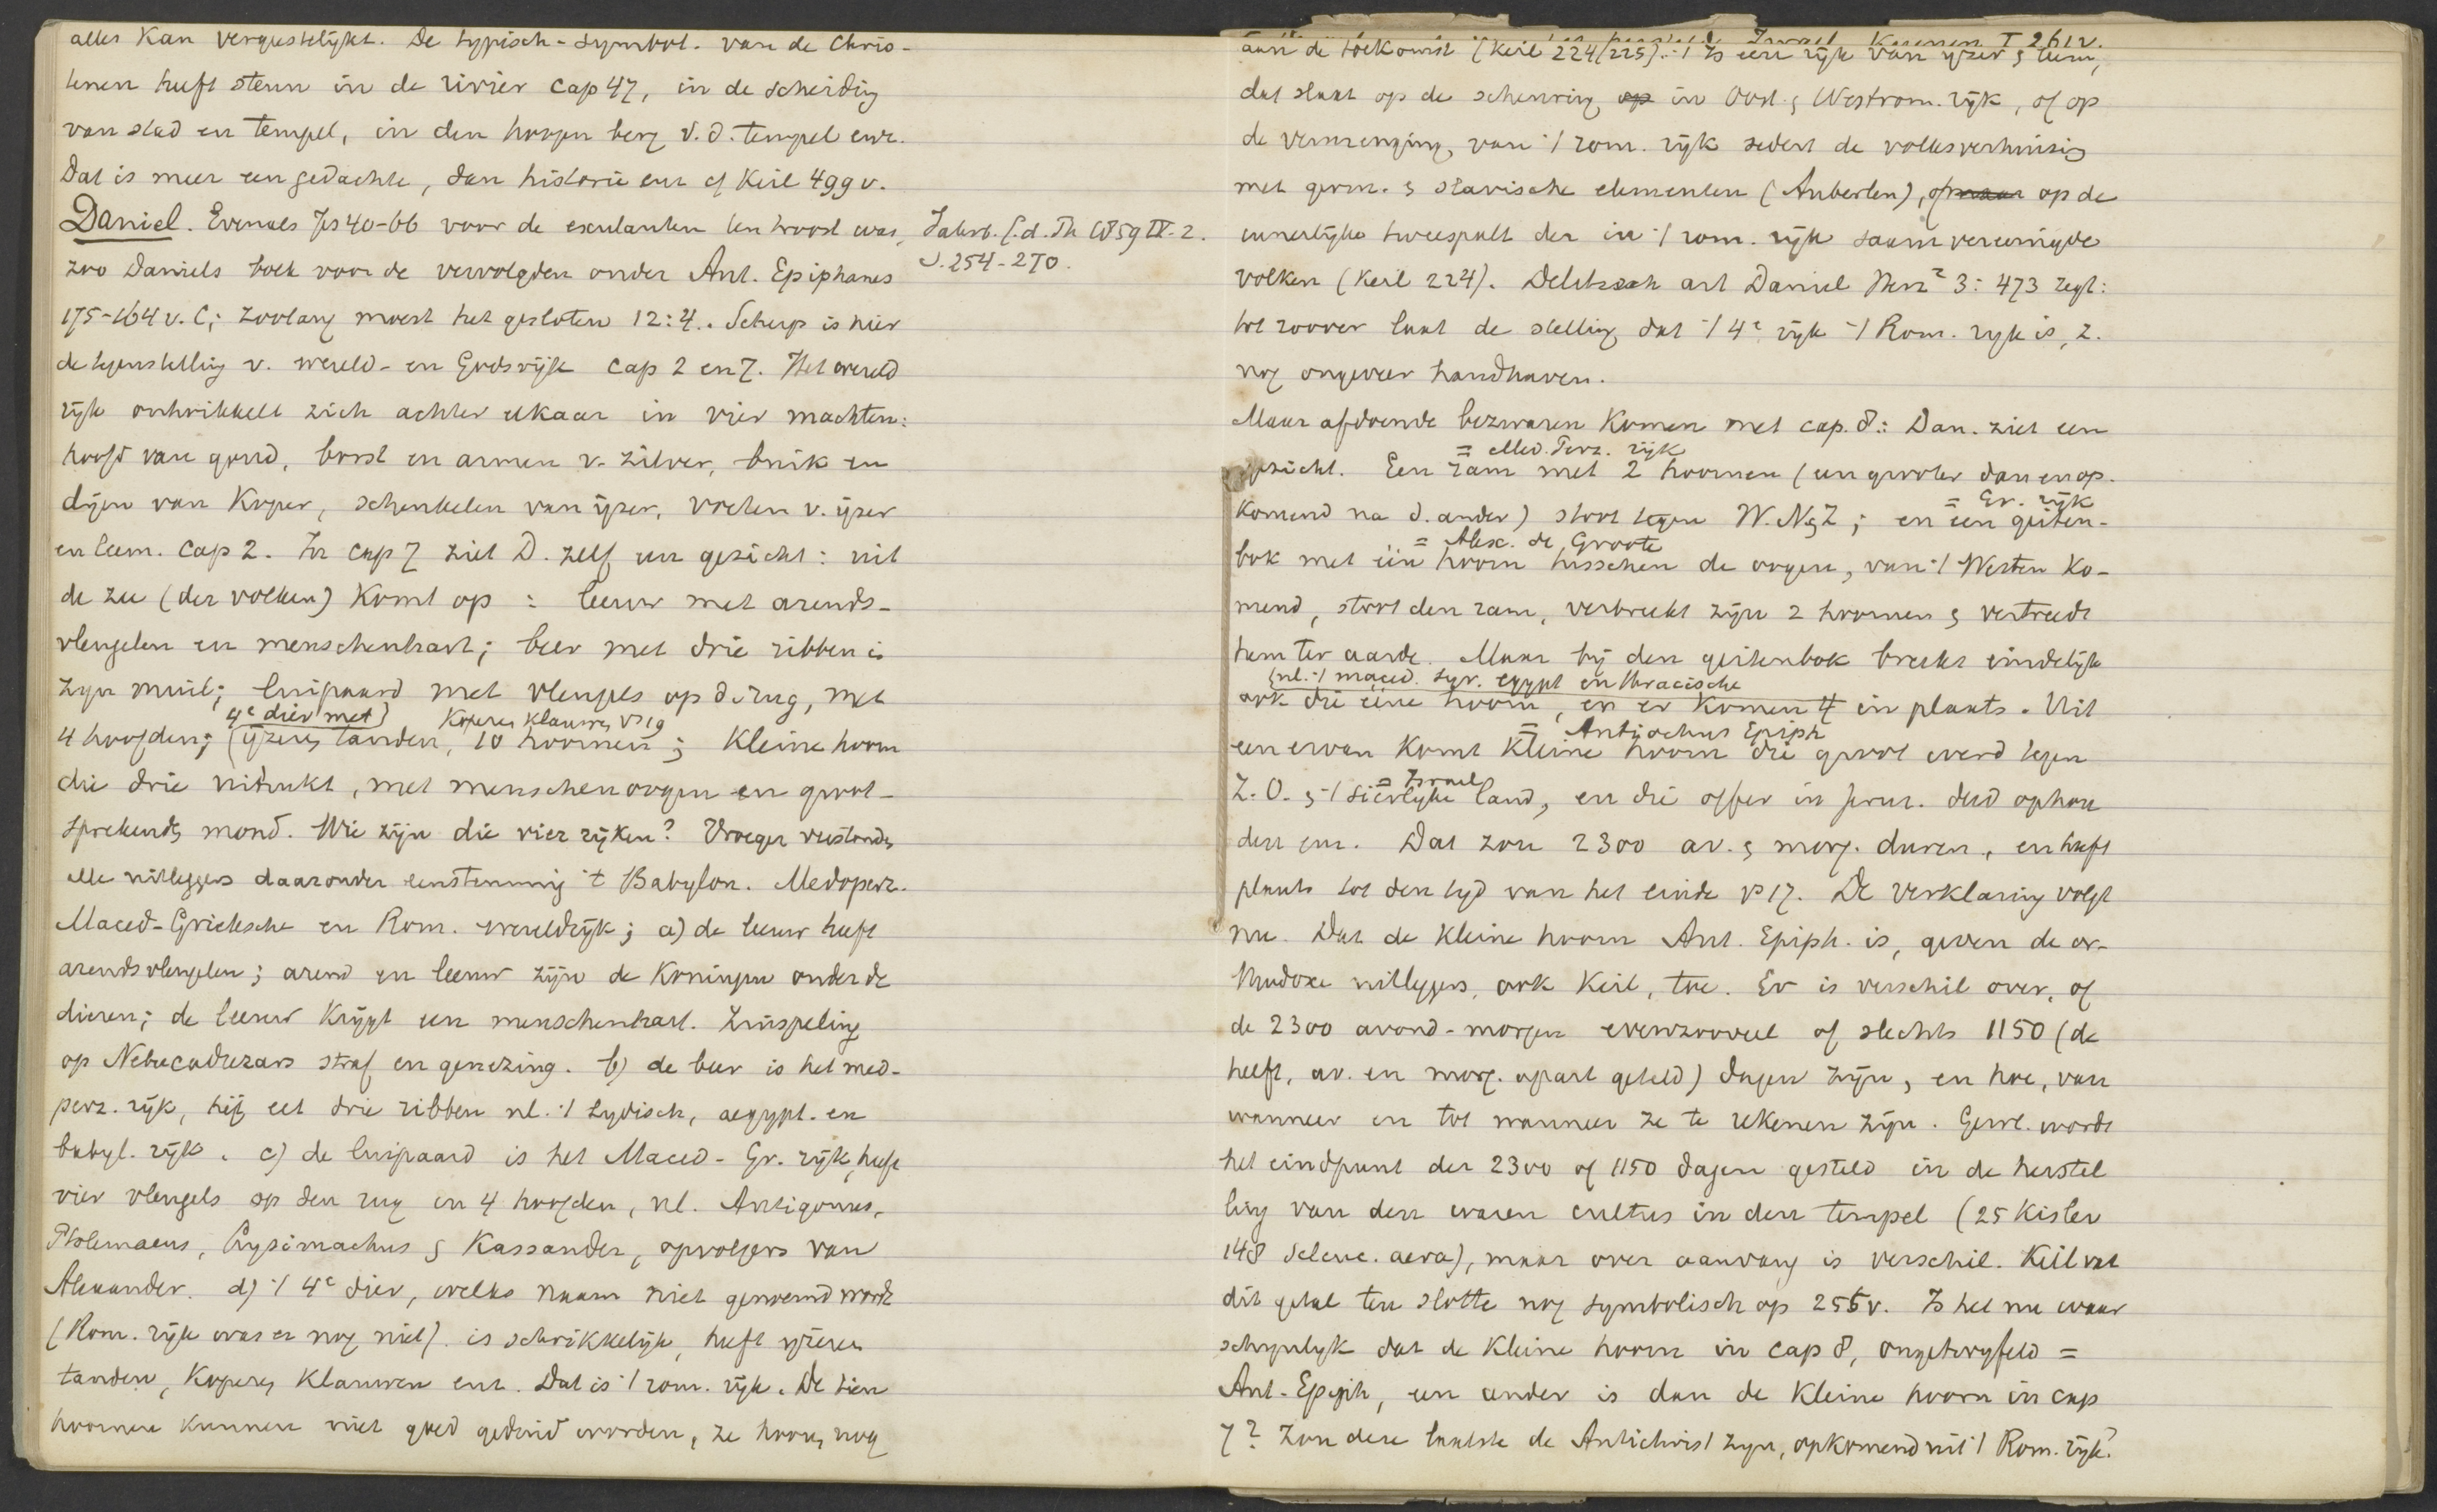 alles kan vergeestelijkt. De typisch-symbol. van de Chris-
tenen heeft steun in de rivier cap 47, in de scheiding
van stad en tempel, in den hoogen berg v. d. tempel enz.
Dat is meer een gedachte, dan historie enz cf Keil 499 v.
Daniel. Evenals Jes 40-66 voor de exulanten ten troost was,
zoo Daniels boek voor de vervolgden onder Ant. Epiphanes
175-164 v. C; zoolang moest het gesloten 12:4. Scherp is hier
de tegenstelling v. wereld- en Godsrijk cap 2 en 7. Het wereld
rijk ontwikkelt zich achter elkaar in vier machten:
hoofd van goud, borst en armen v. zilver, buik en
dijen van koper, schenkelen van ijzer, voeten v. ijzer
en leem. cap 2. In cap 7 ziet D. zelf een gezicht: uit
de zee (der volken) komt op: leeuw met arends-
vleugelen en menschenhart; beer met drie ribben in
zijn muil; luipaard met vleugels op d. rug, met
4e dier met koperen klauwen vs 19
4 hoofden; (ijzeren tanden, 10 hoornen; kleine hoorn
die drie uitrukt, met menschenoogen en groot-
sprekenden mond. Wie zijn die vier rijken? Vroeger verstonden
alle uitleggers daaronder eenstemmig 't Babylon. Medoperz.
Maced-Grieksche en Rom. wereldrijk; a) de leeuw heeft
arendsvleugelen; arend en leeuw zijn de koningen onder de
dieren; de leeuw krijgt een menschenhart. Zinspeling
op Nebucadnezars straf en genezing. b) de beer is het med-
perz. rijk, hij eet drie ribben nl. 't Lydisch, aegypt. en
babyl. rijk. c) de luipaard is het Maced-Gr. rijk, heeft
vier vleugels op den rug en 4 hoofden, nl. Antigonus,
Ptolemaeus, Lysimachus & Kassander, opvolgers van
Alexander. d) 't 4e dier, welks naam niet genoemd wordt
(Rom. rijk was er nog niet) is schrikkelijk, heeft ijzeren
tanden, koperen klauwen enz. Dat is 't rom. rijk. De tien
hoornen kunnen niet goed geduid worden, ze hooren nog
Jahrb. f. d. Th 1859 IV. 2.
S. 254-270.
Israel Kuenen I 261v.
aan de toekomst (Keil 224/225). 't Is een rijk van ijzer & leem,
dat slaat op de scheuring op in Oost. & Westrom. rijk, of op
de vermenging van 't rom. rijk sedert de volksverhuizing
met germ. & slavische elementen (Auberlen), of op de
innerlijke tweespalt der in 't rom. rijk saam vereenigde
volken (Keil 224). Delitzsch art Daniel Herz² 3: 473 zegt:
tot zoover laat de stelling, dat 't 4e rijk 't Rom. rijk is, z.
nog ongeveer handhaven.
Maar afdoende bezwaren komen met cap. 8: Dan. ziet een
= Med. Perz. rijk
gezicht. Een ram met 2 hoornen (een grooter dan en op-
= Gr. rijk
komend na d. ander) stoot tegen W. N & Z; en een geiten-
= Alex. de Groote
bok met één hoorn tusschen de oogen, van 't Westen ko-
mend, stoot den ram, verbreekt zijn 2 hoornen & vertreedt
hem ter aarde. Maar bij den geitenbok breekt eindelijk
(nl. 't maced. syr. egypt en thracische
ook die ééne hoorn, en er komen 4 in plaats. Uit
= Antiochus Epiph
een ervan komt kleine hoorn die groot werd tegen
= Israel
Z. O. & 't sierlijke land, en die offer in Jeruz. deed ophou
den enz. Dat zou 2300 av. & morg. duren, en heeft
plaats tot den tijd van het einde vs 17. De verklaring volgt
nu. Dat de kleine hoorn Ant. Epiph. is, geven de or-
thodoxe uitleggers, ook Keil, toe. Er is verschil over, of
de 2300 avond-morgen evenzooveel of slechts 1150 (de
helft, av. en morg. apart geteld) dagen zijn, en hoe, van
wanneer en tot wanneer ze te rekenen zijn. Gewl. wordt
het eindpunt der 2300 of 1150 dagen gesteld in de herstel
ling van den waren cultus in den tempel (25 Kislev
148 seleuc. aera), maar over aanvang is verschil. Keil vat
dit getal ten slotte nog symbolisch op 255v. Is het nu waar
schijnlijk dat de kleine hoorn in cap 8, ongetwijfeld =
Ant. Epiph, een ander is dan de kleine hoorn in cap
7? Zou deze laatste de Antichrist zijn, opkomend uit 't Rom. rijk?